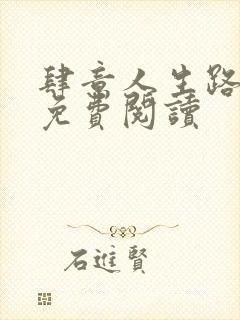 肆意人生路
免費閱讀
石進賢